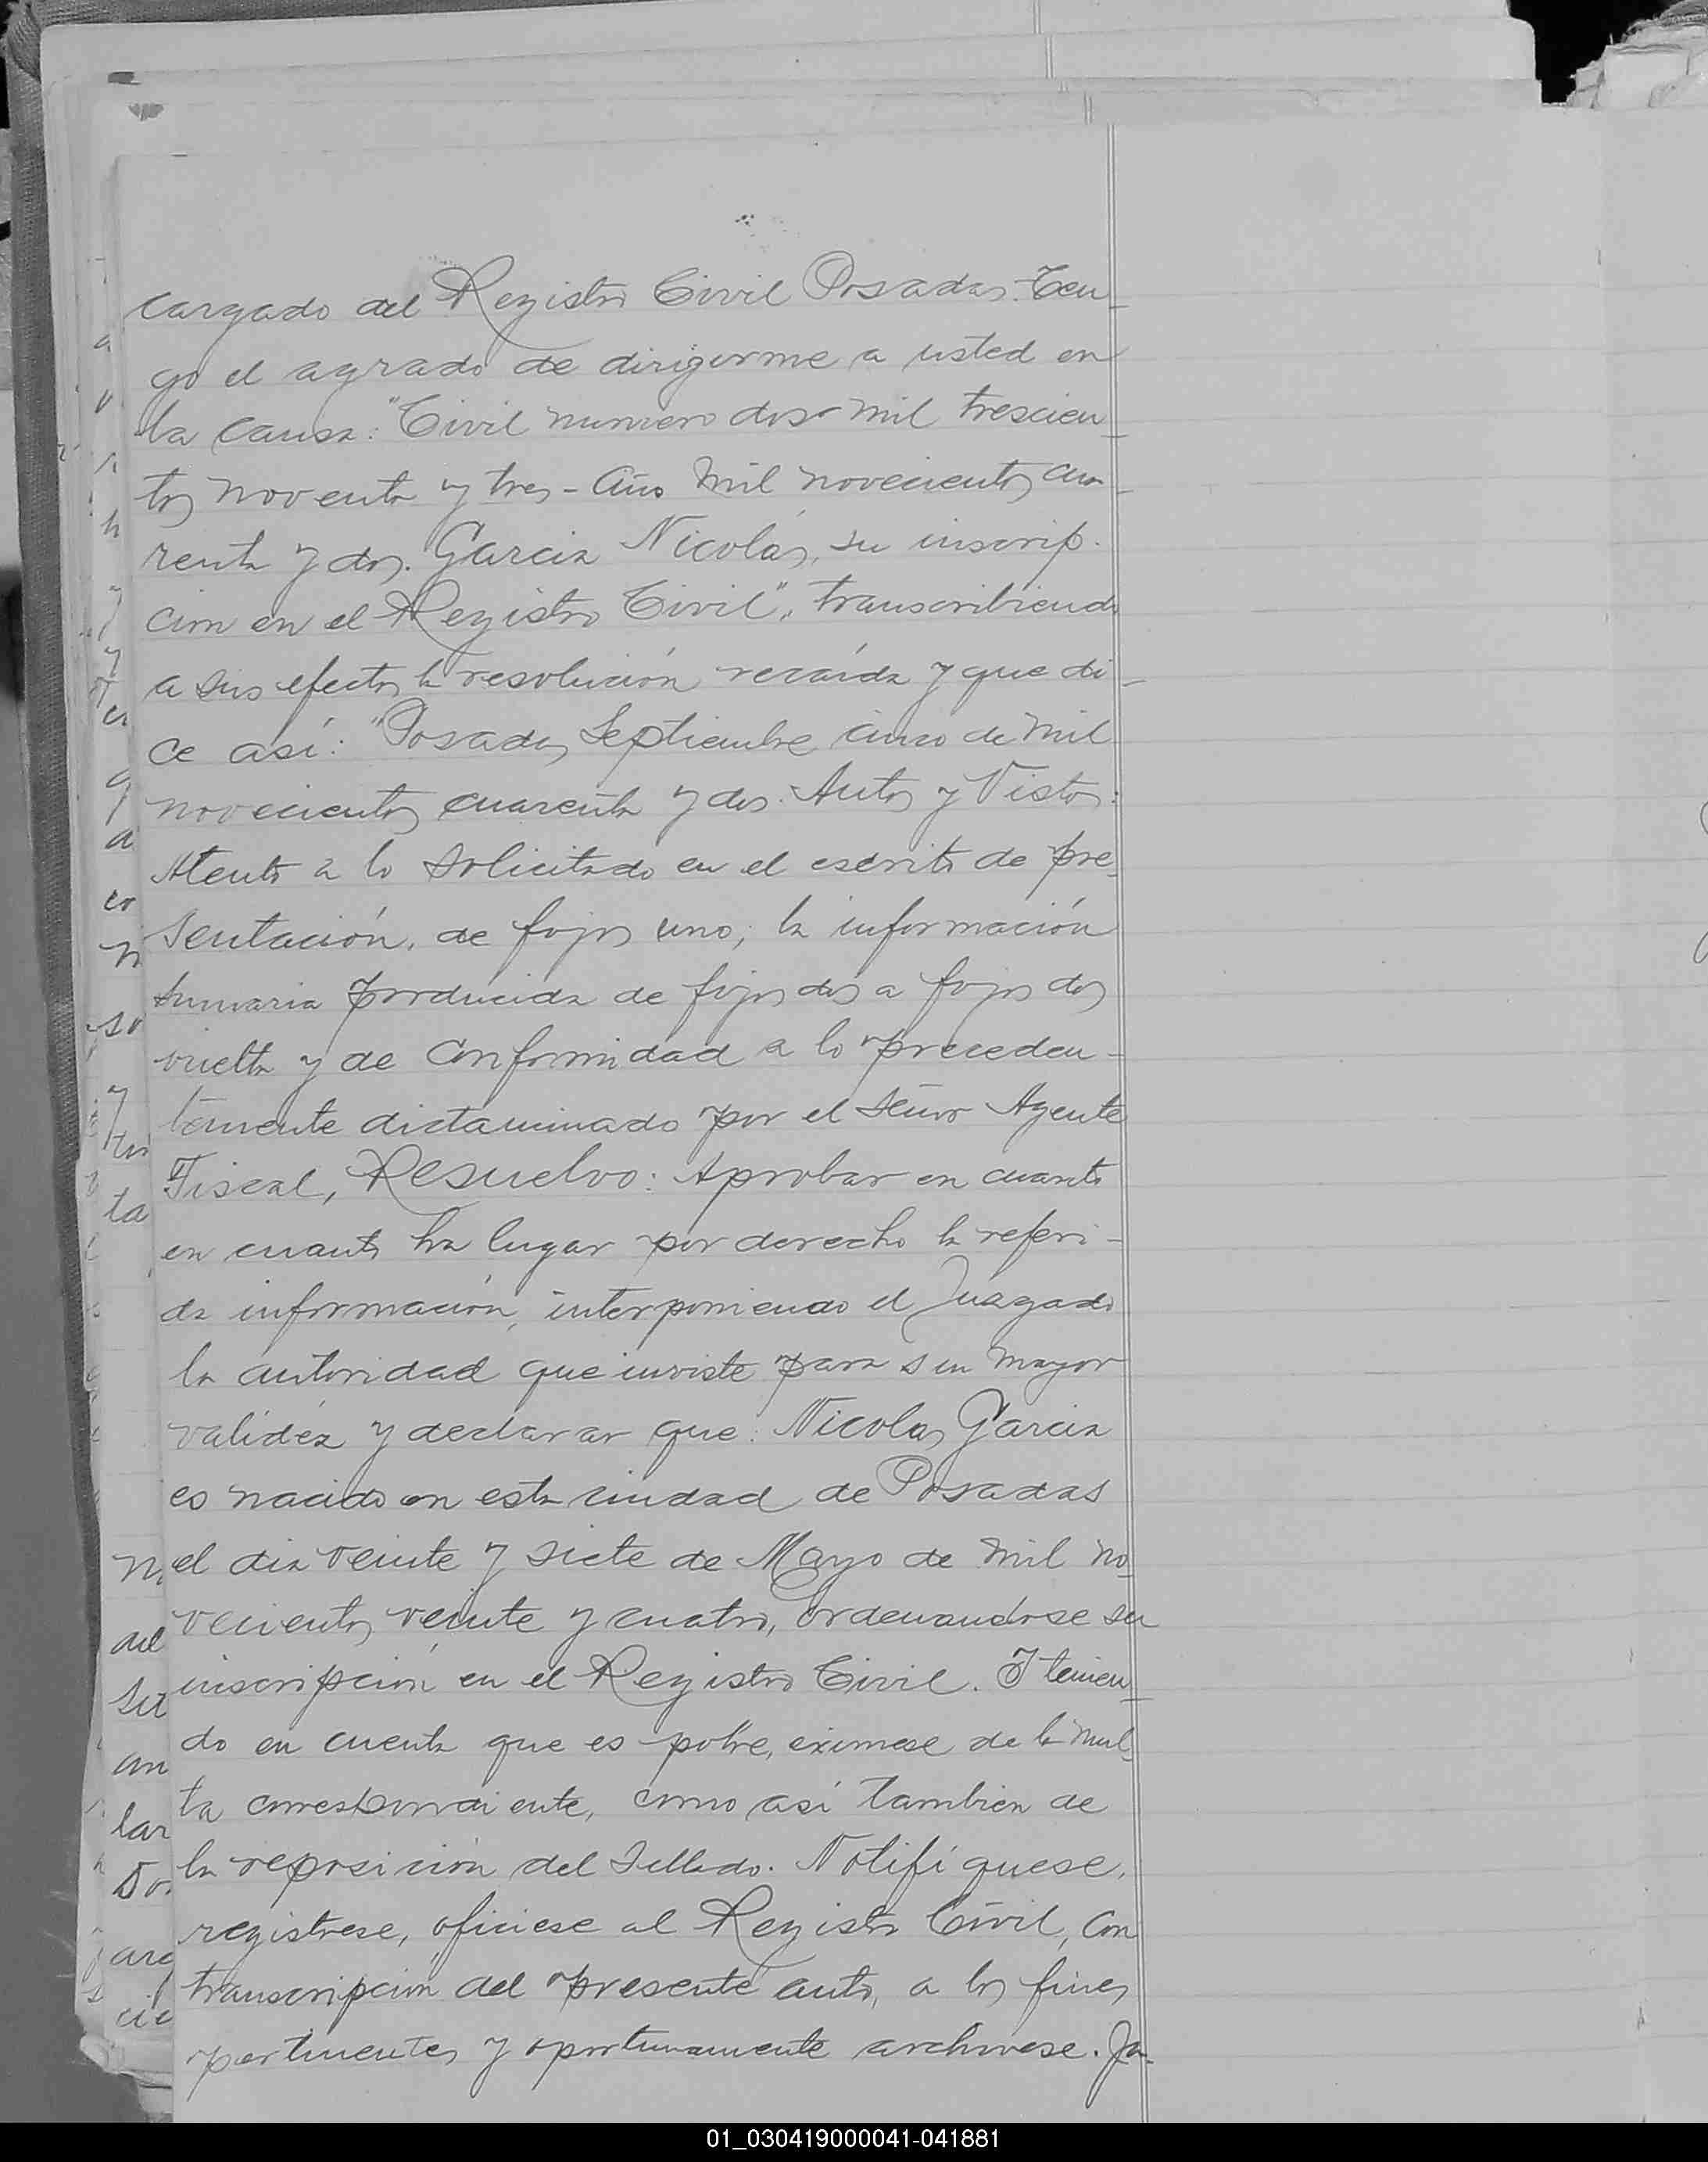 cargado del Registro Civil Posadas. Ten-
go el agrado de dirigirme a usted en
la causa: "Civil numero dos mil trescien-
tos noventa y tres - Año mil novecientos cua-
renta y dos. Garcia Nicolás, su inscrip-
cion en el Registro Civil", transcribiendo
a sus efectos la resolución recaída y que di-
ce así: "Posadas, Septiembre cinco de mil
novecientos cuarenta y dos. Autos y Vistos:
Atento a lo solicitado en el escrito de pre-
sentación, de fojas uno; la información
sumaria producida de fojas dos a fojas dos
vuelta y de conformidad a lo preceden-
temente dictaminado por el señor Agente
Fiscal, Resuelvo: Aprobar en cuanto
en cuanto ha lugar por derecho la referi-
da información, interponiendo el Juzgado
la autoridad que inviste para su mayor
validéz y declarar que: Nicolas Garcia
es nacido en esta ciudad de Posadas
el dia veinte y siete de Mayo de mil no-
vecientos veinte y cuatro, ordenandose su
inscripción en el Registro Civil. Y tenien-
do en cuenta que es pobre, eximese de la mul-
ta correspondiente, como así tambien de
la reposición del sellado. Notifíquese,
registrese, ofíciese al Registro Civil, con
transcripción del presente auto, a los fines
pertinentes y oportunamente archivese. Ja-
01_030419000041-041881